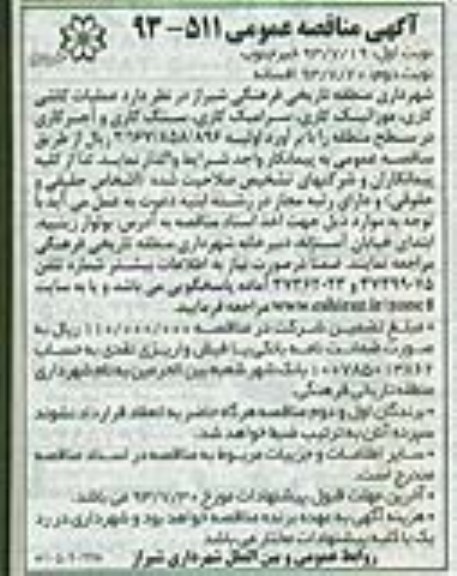 آگهی مناقصه عمومی ۵۱۱ - ۹۳
نوبت اول: ۹۳/۷/۱۹ خبر جنوب
نوبت دوم: ۹۳/۷/۲۰ افسانه
شهرداری منطقه تاریخی فرهنگی شیراز در نظر دارد عملیات کاشی
کاری، موزائیک کاری، سرامیک کاری، سنگ کاری و آجرکاری
در سطح منطقه را با برآورد اولیه ریال از طریق
مناقصه عمومی به پیمانکار واجد شرایط واگذار نماید. لذا از کلیه
پیمانکاران و شرکتهای تشخیص صلاحیت شده (اشخاص حقیقی و
حقوقی) و دارای رتبه مجاز در رشته ابنیه دعوت به عمل می آید با
توجه به موارد ذیل جهت اخذ اسناد مناقصه به آدرس: بولوار زینبیه،
ابتدای خیابان آستانه، دبیرخانه شهرداری منطقه تاریخی فرهنگی
مراجعه نمایند. ضمنا در صورت نیاز به اطلاعات بیشتر شماره تلفن
و آماده پاسخگویی می باشد و یا به سایت
مراجعه فرمایید.
• مبلغ تضمین شرکت در مناقصه ۱۱۰/۰۰۰/۰۰۰ ریال به
صورت ضمانت نامه بانکی یا فیش واریزی نقدی به حساب
بانک شهر شعبه بین الحرمین به نام شهرداری
منطقه تاریخی فرهنگی.
• برندگان اول و دوم مناقصه هرگاه حاضر به انعقاد قرارداد نشوند
سپرده آنان به ترتیب ضبط خواهد شد.
• سایر اطلاعات و جزییات مربوط به مناقصه در اسناد مناقصه
مندرج است.
• آخرین مهلت قبول پیشنهادات مورخ ۹۳/۷/۳۰ می باشد.
• هزینه آگهی به عهده برنده مناقصه خواهد بود و شهرداری در رد
یک یا کلیه پیشنهادات مختار می باشد
روابط عمومی و بین الملل شهرداری شیراز